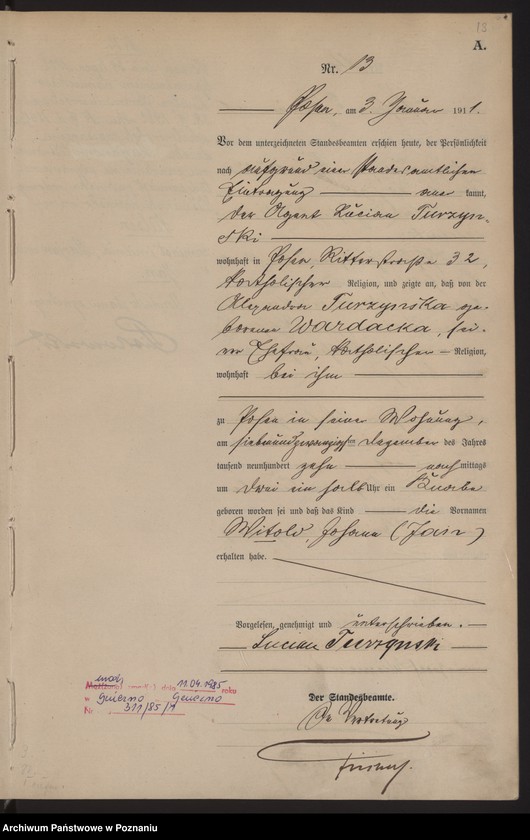 13
A.
Nr. 13
Posen, am 3. Januar 1911.
Vor dem unterzeichneten Standesbeamten erschien heute, der Persönlichkeit
nach aufgrund einer standesamtlichen
Eintragung — aner kannt,
der Agent Lucian Turzyn-
ski
wohnhaft in Posen, Ritterstraße 32,
katholischer Religion, und zeigte an, daß von der
Alexandra Turzynska ge-
borene Wardacka, sei-
ner Ehefrau, katholischer — Religion,
wohnhaft bei ihm
zu Posen in seiner Wohnung,
am siebenundzwanzigsten Dezember des Jahres
tausend neunhundert zehn — nachmittags
um drei ein halb Uhr ein Knabe
geboren worden sei und daß das Kind — die Vornamen
Witold, Johann (Jan)
erhalten habe.
Vorgelesen, genehmigt und unterschrieben. —
Lucian Turzynski
Der Standesbeamte.
In Vertretung
dnia 11.04.1985 roku
w Gnieźno Gniezno
Nr 311/85/1
Archiwum Państwowe w Poznaniu